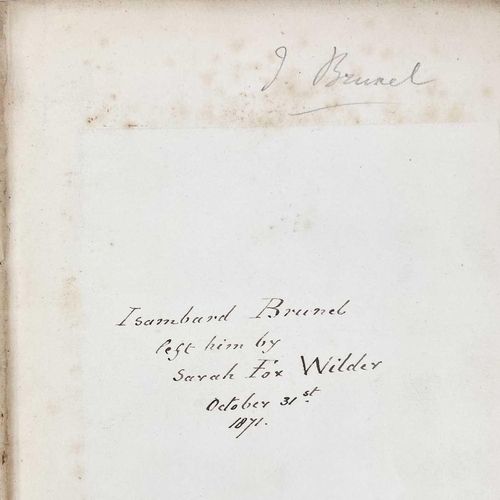 J Brunel
Isambard Brunel
left him by
Sarah Fox Wilder
October 31st
1871.